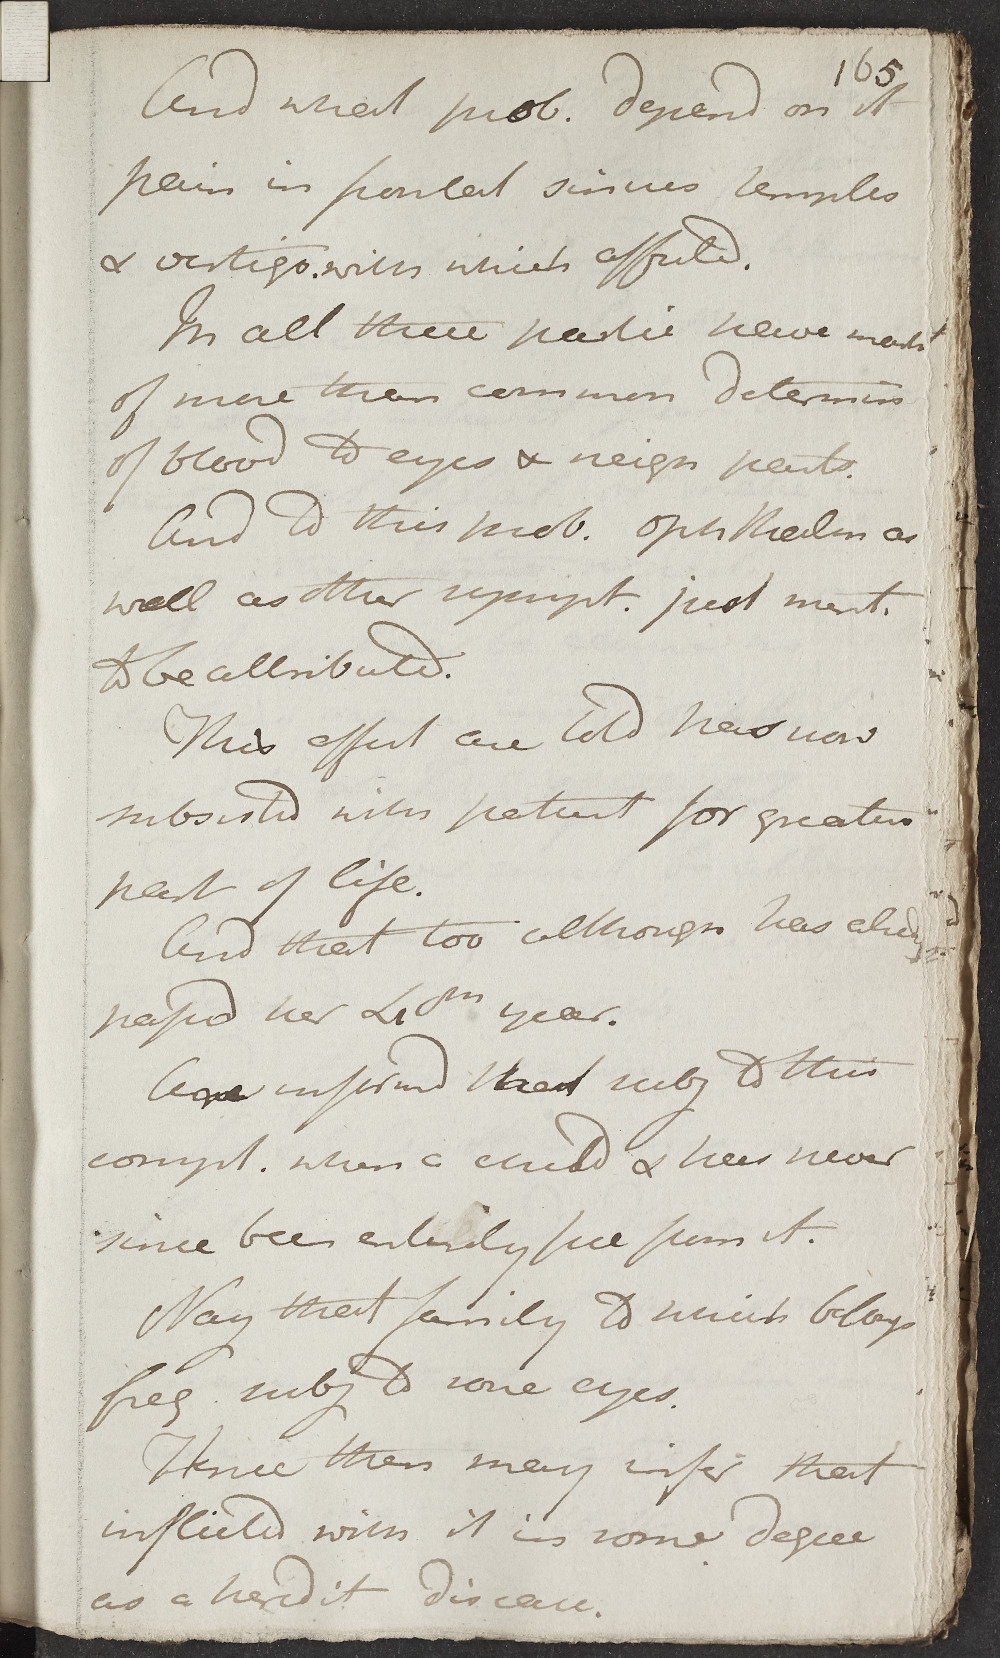 165
And what prob. depend on it
pain in frontal sinues temples
& vertigo. with which affected.
In all these partic have mark
of more than common determin
of blood to eyes & neigh parts.
And to this prob. ophthalm as
well as other sympt. just ment.
to be attributed.
This affect are told has now
subsisted with patient for greater
part of life.
And that too although has alredy
passed her 40th year.
Are informd that subj to this
compt. when a child & has never
since been entirely free from it.
Nay that family to which belongs
freq. subj to sore eyes.
Hence then may infer that
inflicted with it in some degree
as a heredit disease.